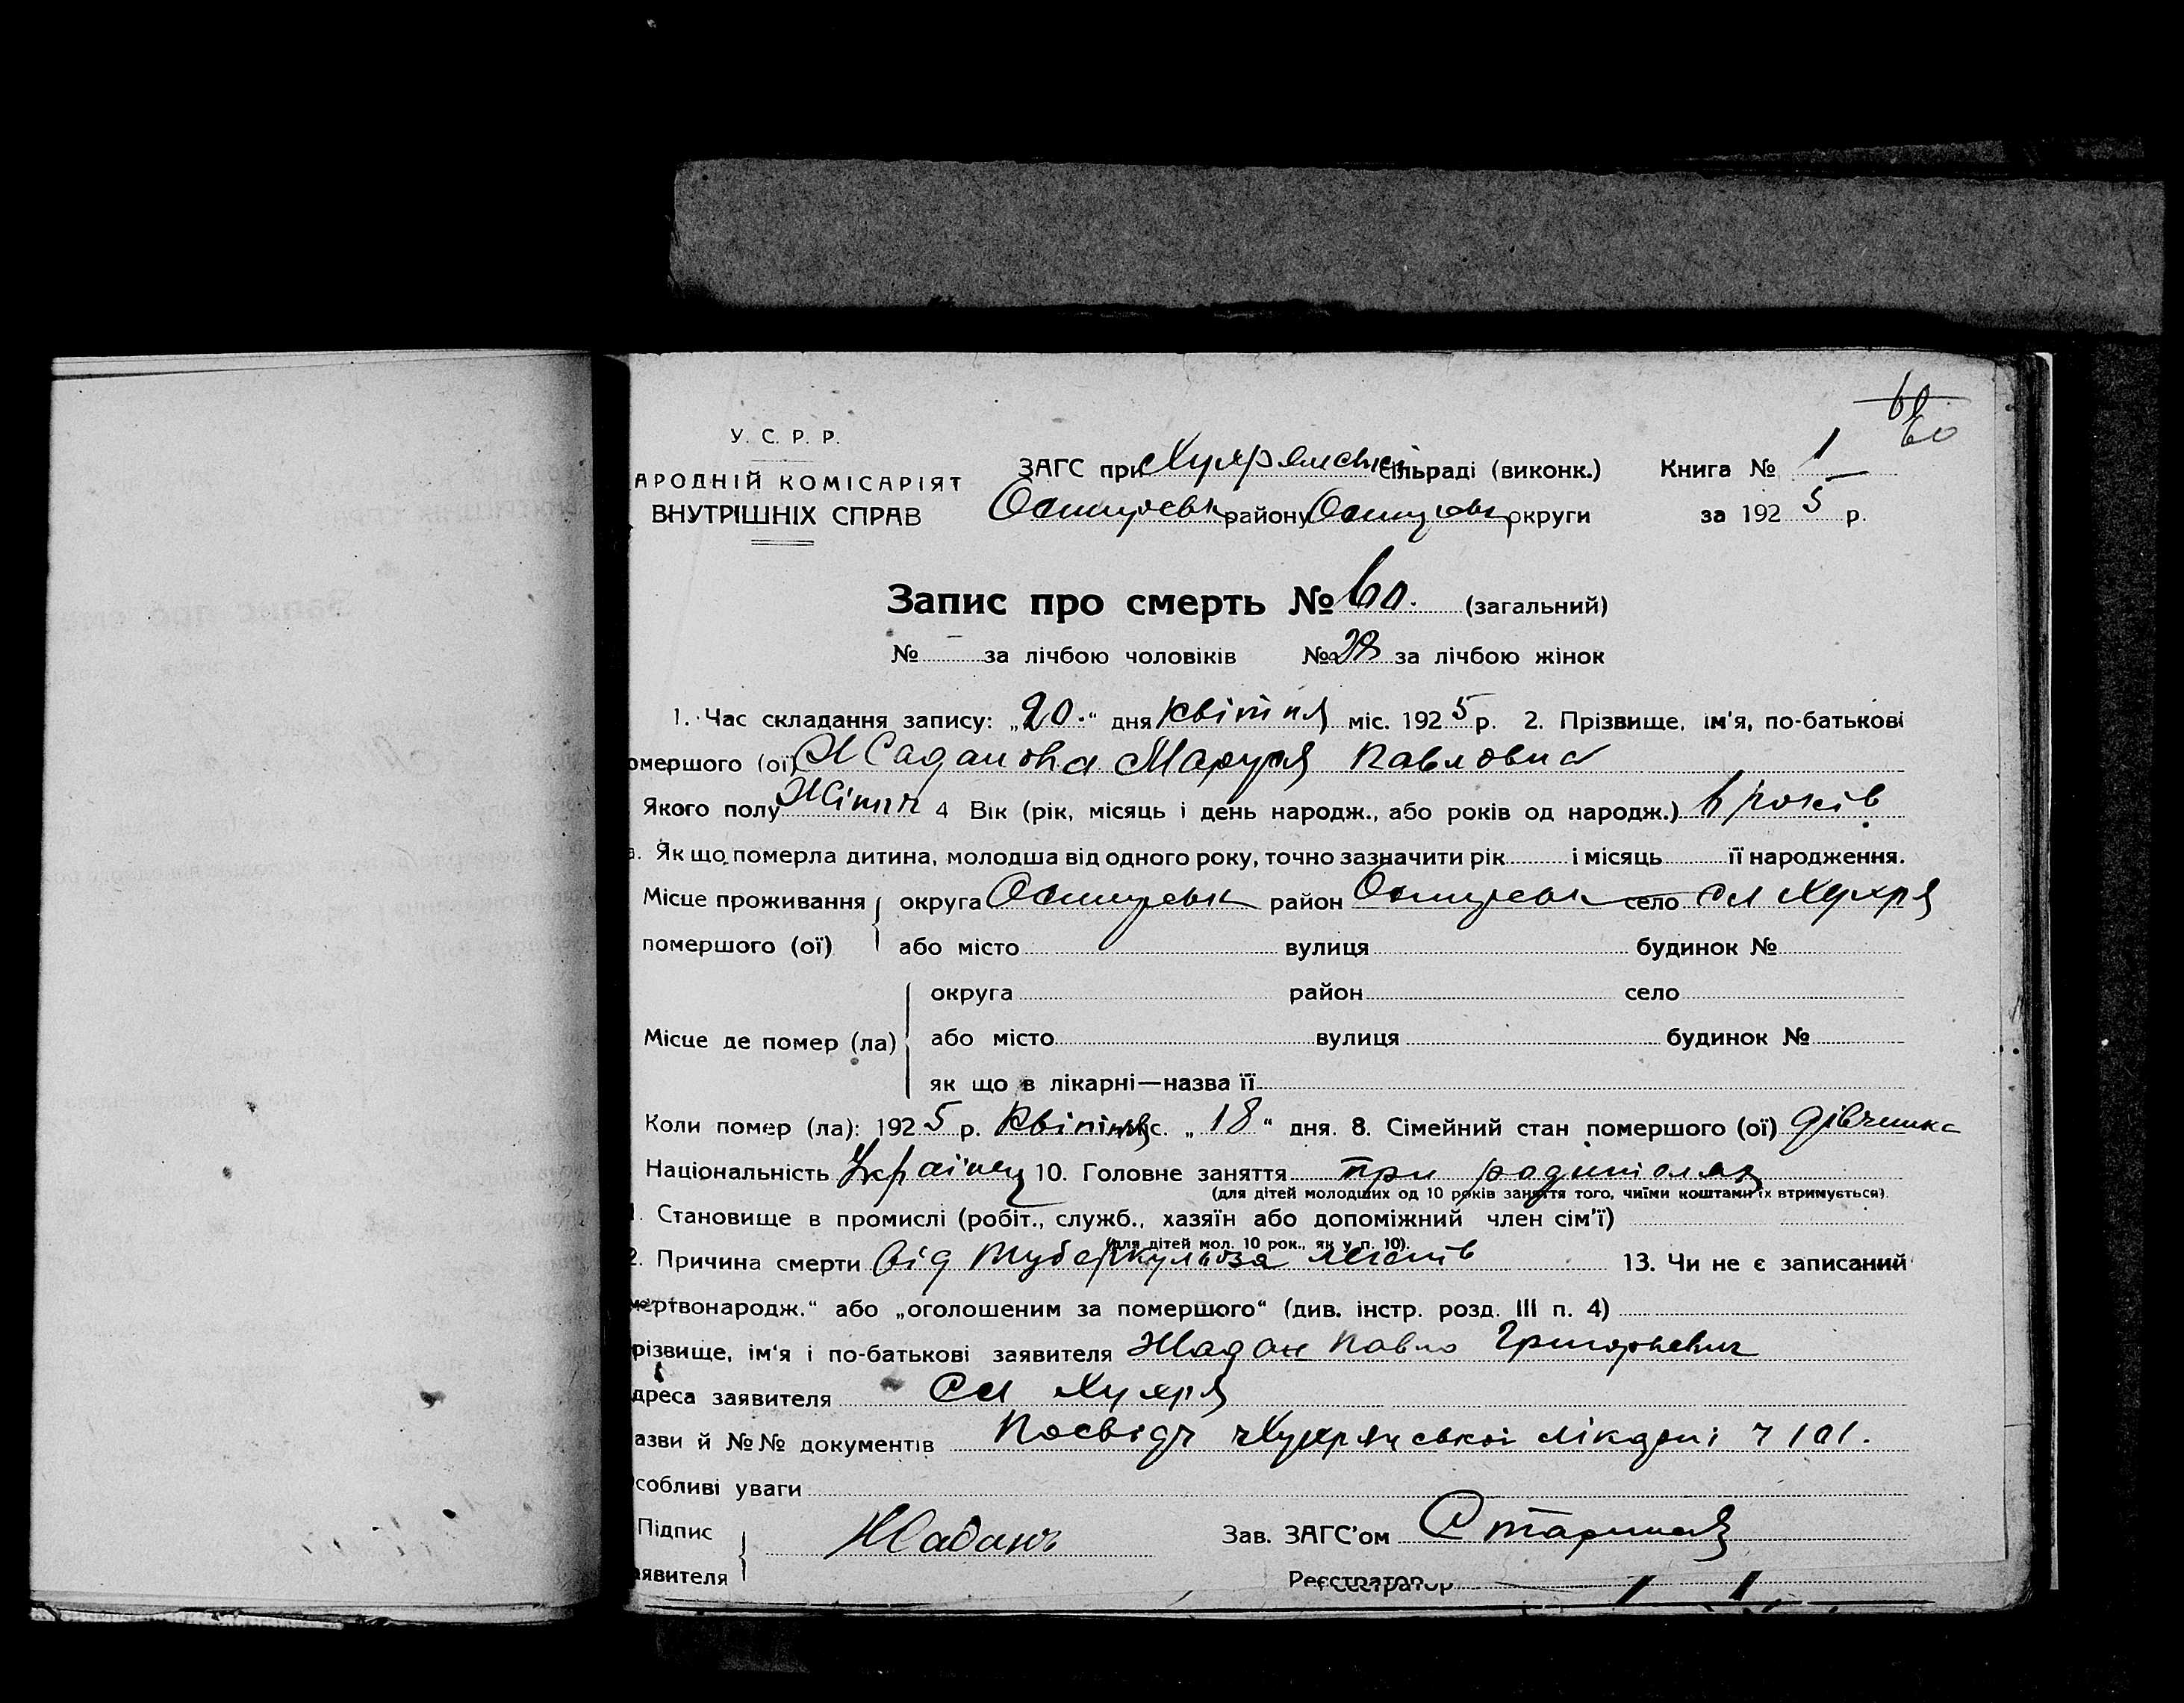 60
У. С. Р. Р.
АРОДНІЙ КОМІСАРІЯТ
ВНУТРІШНІХ СПРАВ
ЗАГС при Хухрянській сільраді (виконк.)
району округи
Книга № 1
за 1925 р.
Запис про смерть № 60. (загальний)
№ — за лічбою чоловіків № 28 за лічбою жінок
1. Час складання запису: „20.“ дня квітня міс. 1925 р. 2. Прізвище, ім'я, по-батькові
омершого (ої) Жаданова Маруся Павловна
Якого полу Жіноч 4 Вік (рік, місяць і день народж., або років од народж.) 6 років
Як що померла дитина, молодша від одного року, точно зазначити рік і місяць її народження.
Місце проживання округа район село сл Хухря
помершого (ої) або місто вулиця будинок №
округа район село
Місце де помер (ла) або місто вулиця будинок №
як що в лікарні—назва її
Коли помер (ла): 1925 р. квітня міс. „18“ дня. 8. Сімейний стан помершого (ої) дівчинка
Національність Українец 10. Головне заняття при родителях
(для дітей молодших од 10 років заняття того, чиїми коштами їх втримується).
. Становище в промислі (робіт., служб., хазяїн або допоміжний член сім'ї)
(для дітей мол. 10 рок., як у п. 10).
2. Причина смерти від туберкульоза легенів 13. Чи не є записаний
мертвонародж.“ або „оголошеним за помершого“ (див. інстр. розд. III п. 4)
різвище, ім'я і по-батькові заявителя Жадан Павло Григорьевич
дреса заявителя Сл Хухря
азви й №№ документів Посвідч Хухрянської лікарні ч 101.
собливі уваги
Підпис
аявителя
Жаданъ
Зав. ЗАГС'ом
Реєстратор